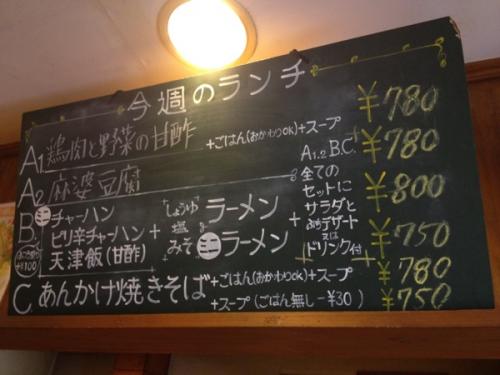 今週のランチ
A1 鶏肉と野菜の甘酢 +ごはん(おかわりOK)+スープ ¥780
A2 麻婆豆腐 ¥780
B ミニ チャーハン
ピリ辛チャーハン
天津飯(甘酢)
+ しょうゆ
塩
みそ
ラーメン ¥800
ミニ ラーメン ¥750
+¥100
A1.2 B.C.
全ての
セットに
サラダと
ぷちデザート
又は
ドリンク付
C. あんかけ焼きそば +ごはん(おかわりOK)+スープ ¥780
+スープ(ごはん無し-¥30) ¥750